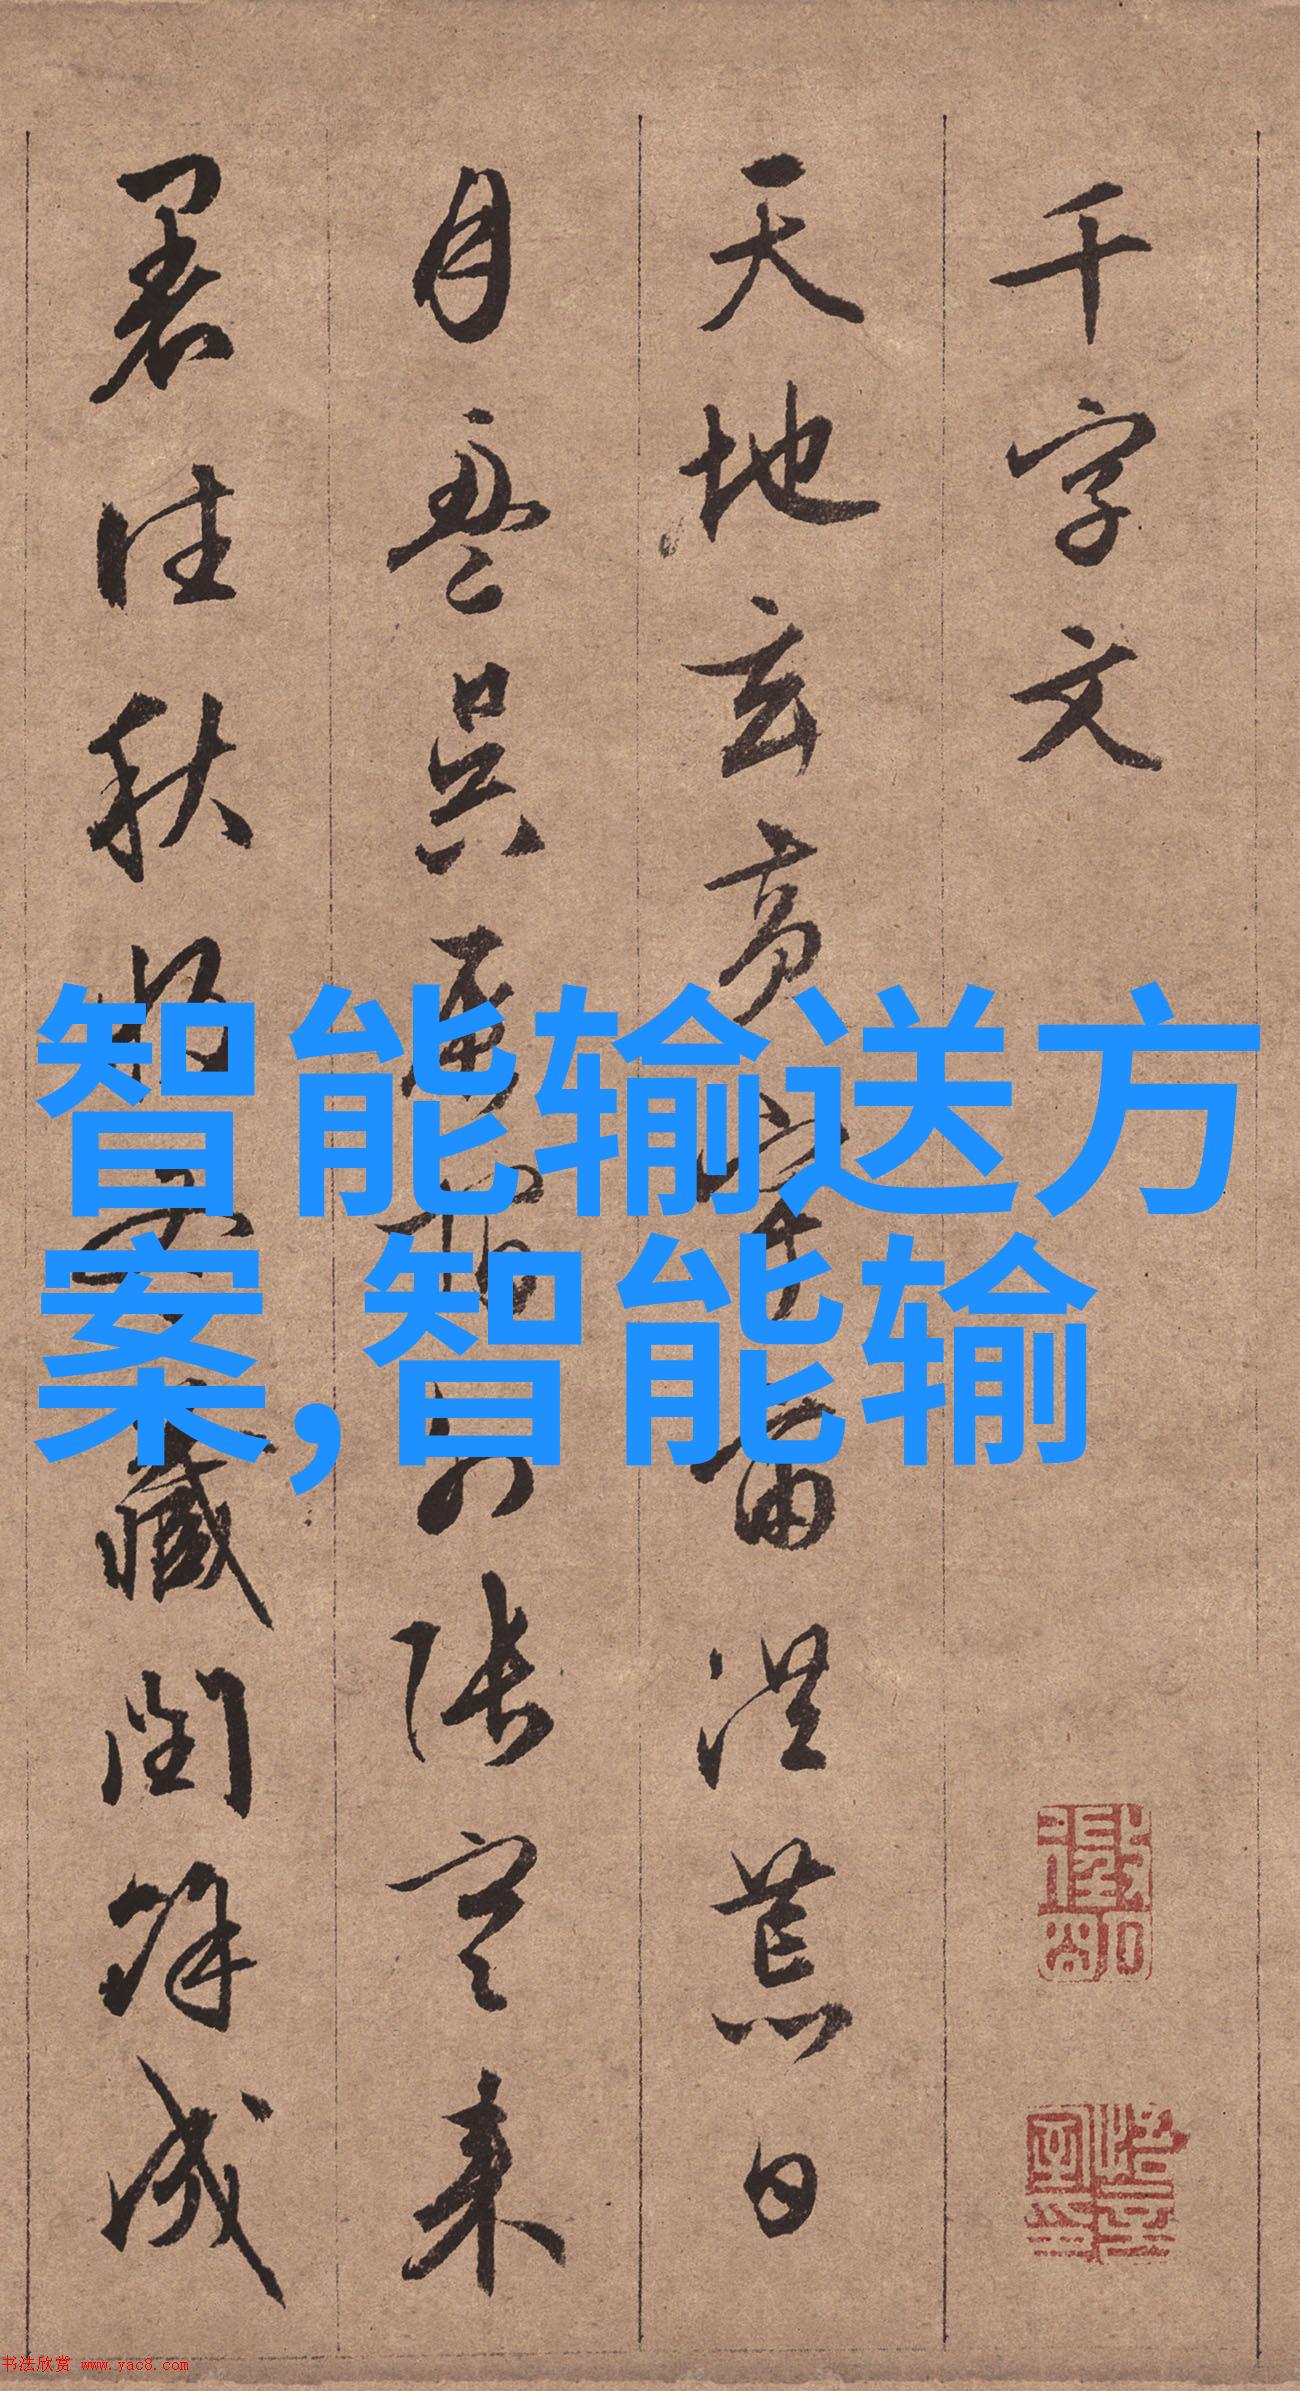 千字文
天地玄黄宇宙洪荒日
月盈昃辰宿列张寒来
暑往秋收冬藏闰馀成
智能输送方
案,智能输
书法欣赏 www.yac8.com